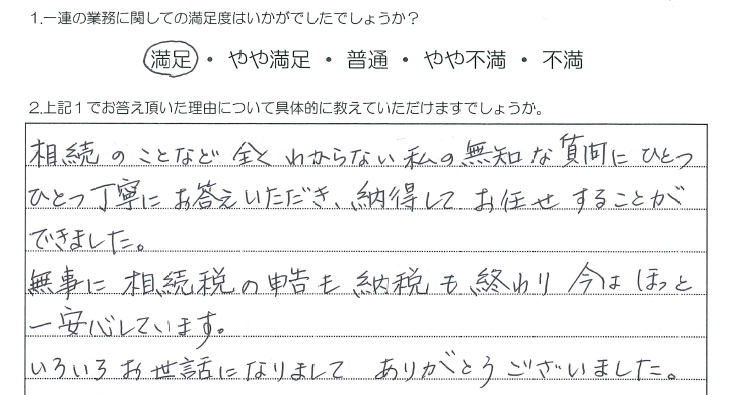 1.一連の業務に関しての満足度はいかがでしたでしょうか？
満足 ・ やや満足 ・ 普通 ・ やや不満 ・ 不満
2.上記１でお答え頂いた理由について具体的に教えていただけますでしょうか。
相続のことなど全くわからない私の無知な質問にひとつ
ひとつ丁寧にお答えいただき、納得してお任せすることが
できました。
無事に相続税の申告も納税も終わり今はほっと
一安心しています。
いろいろお世話になりましてありがとうございました。